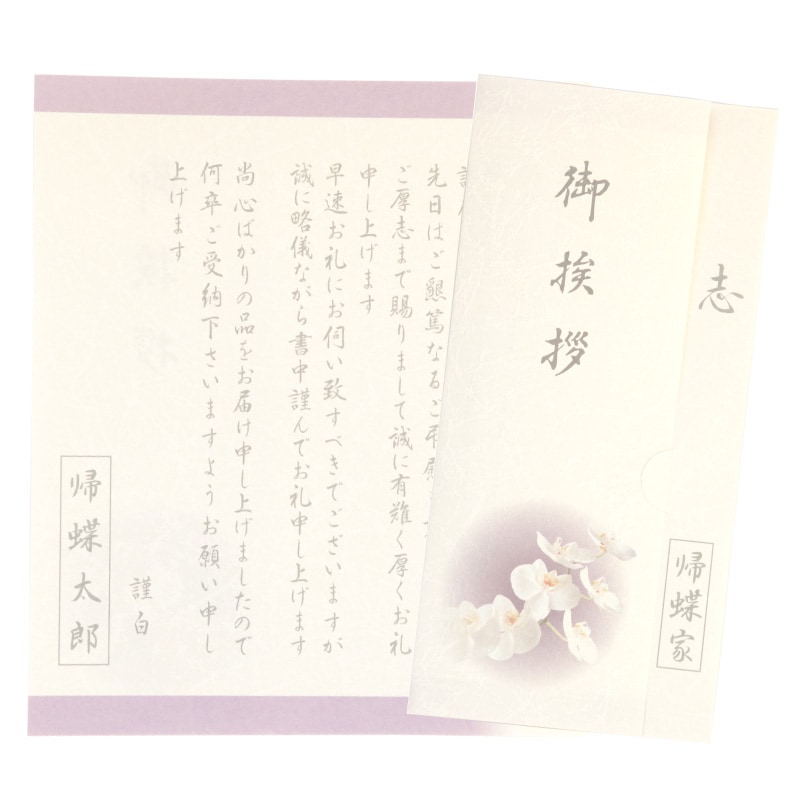 志
帰蝶家
御挨拶
先日はご懇篤なるご弔慰
ご厚志まで賜りまして誠に有難く厚くお礼
申し上げます
早速お礼にお伺い致すべきでございますが
誠に略儀ながら書中謹んでお礼申し上げます
尚心ばかりの品をお届け申し上げましたので
何卒ご受納下さいますようお願い申し
上げます
謹白
帰蝶太郎